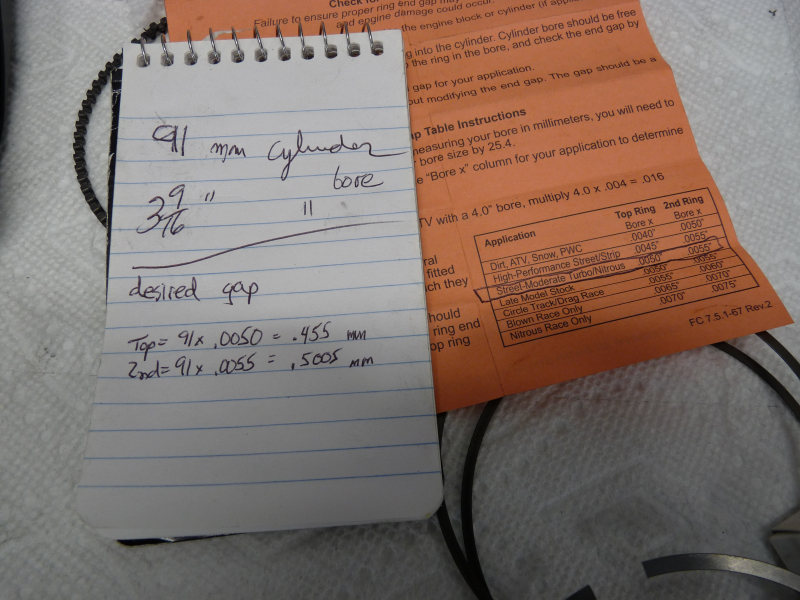 91 mm cylinder
bore
3 9/16 " "
desired gap
Top = 91 x .0050 = .455 mm
2nd = 91 x .0055 = .5005 mm
Check for
Failure to ensure proper ring end gap may
and engine damage could occur.
the engine block or cylinder (if
into the cylinder. Cylinder bore should be free
the ring in the bore, and check the end gap by
gap for your application.
modifying the end gap. The gap should be a
Table Instructions
measuring your bore in millimeters, you will need to
bore size by 25.4.
"Bore x" column for your application to determine
with a 4.0" bore, multiply 4.0 x .004 = .016
fitted
they
ring end
ring
Application Top Ring 2nd Ring
Bore x Bore x
Dirt, ATV, Snow, PWC .0040" .0050"
High-Performance Street/Strip .0045" .0055"
Street-Moderate Turbo/Nitrous .0050" .0055"
Late Model Stock .0050" .0055"
Circle Track/Drag Race .0055" .0060"
Blown Race Only .0065" .0070"
Nitrous Race Only .0070" .0075"
FC 7.5.1-67 Rev.2